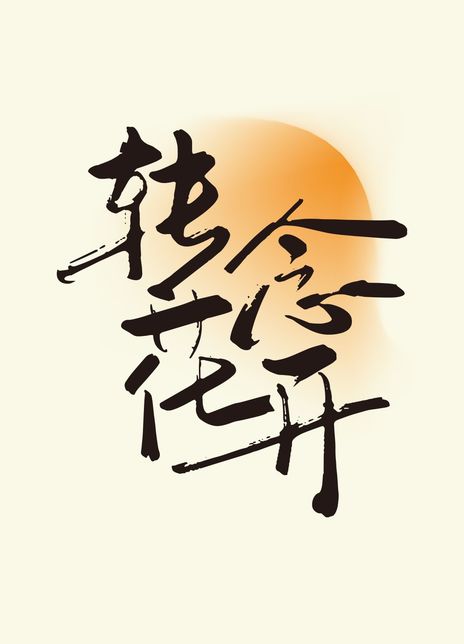 转念
花开